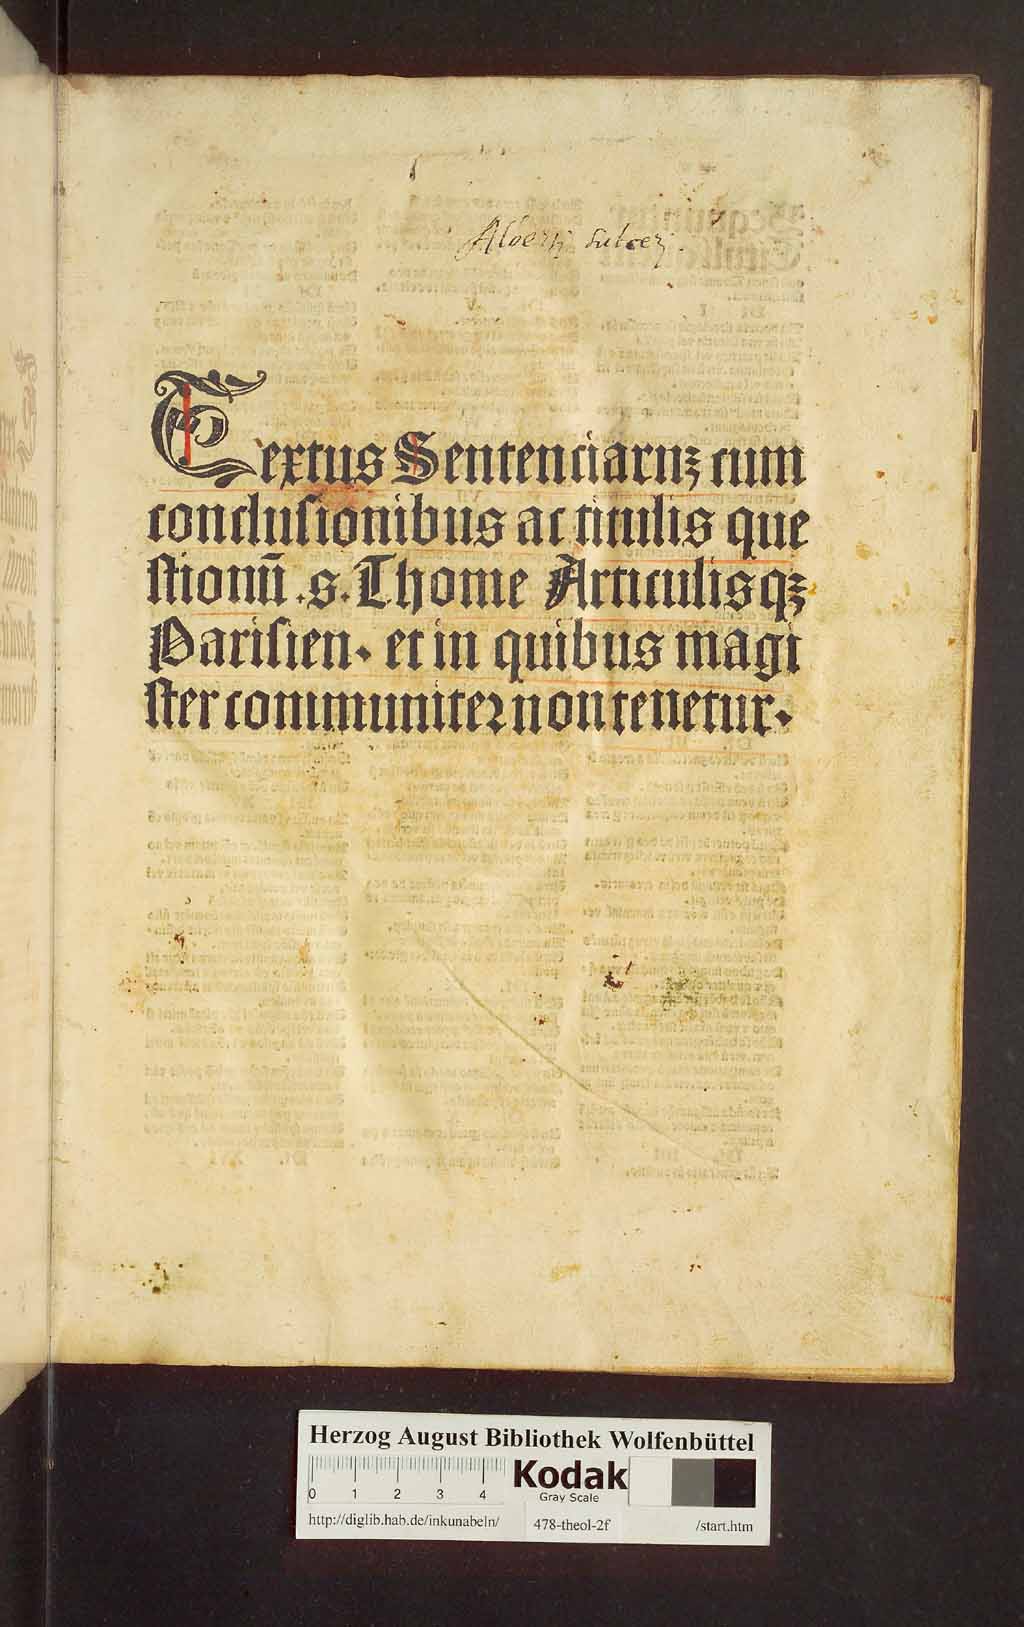 Textus Sentenciaruꝫ cum
conclusionibus ac titulis que
stionū .s. Thome Articulisqꝫ
Parisien. et in quibus magi
ster communiter non tenetur.
Herzog August Bibliothek Wolfenbüttel
0 1 2 3 4
Kodak
Gray Scale
http://diglib.hab.de/inkunabeln/ 478-theol-2f /start.htm